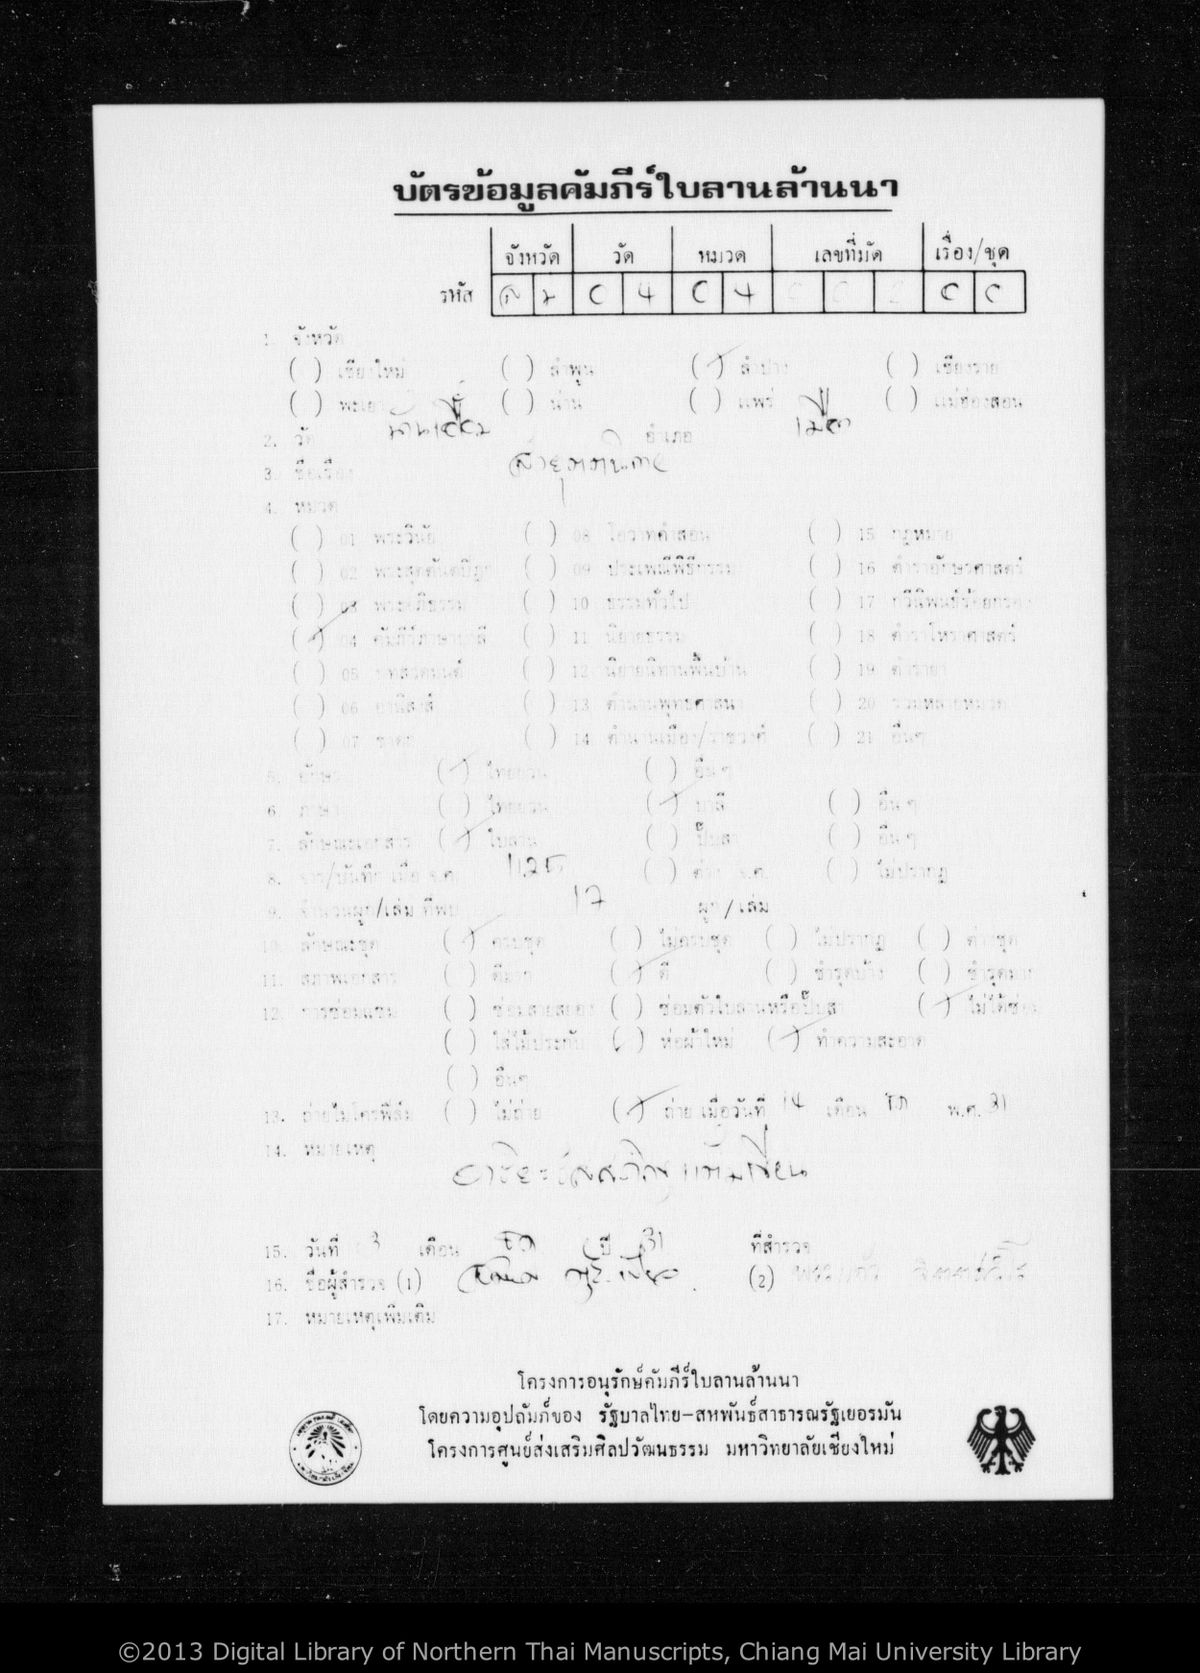 บัตรข้อมูลคัมภีร์ใบลานล้านนา
จังหวัด วัด หมวด เลขที่มัด เรื่อง/ชุด
รหัส 0 4 0 4 0 0
1. จังหวัด
( ) เชียงใหม่ ( ) ลำพูน (/) ลำปาง ( ) เชียงราย
( ) พะเยา ( ) น่าน ( ) แพร่ ( ) แม่ฮ่องสอน
2. วัด อำเภอ เมือง
3. ชื่อเรื่อง
4. หมวด
( ) 01 พระวินัย ( ) 08 โอวาทคำสอน ( ) 15 กฎหมาย
( ) 02 พระสุตตันตปิฎก ( ) 09 ประเพณีพิธีกรรม ( ) 16 ตำราอักษรศาสตร์
( ) 03 พระอภิธรรม ( ) 10 ธรรมทั่วไป ( ) 17 กวีนิพนธ์ร้อยกรอง
(/) 04 คัมภีร์ภาษาบาลี ( ) 11 นิยายธรรม ( ) 18 ตำราโหราศาสตร์
( ) 05 บทสวดมนต์ ( ) 12 นิยายนิทานพื้นบ้าน ( ) 19 ตำรายา
( ) 06 อานิสงส์ ( ) 13 ตำนานพุทธศาสนา ( ) 20 รวมหลายหมวด
( ) 07 ชาดก ( ) 14 ตำนานเมือง/ราชวงศ์ ( ) 21 อื่นๆ
5. อักษร (/) ไทยยวน ( ) อื่นๆ
6. ภาษา ( ) ไทยยวน (/) บาลี ( ) อื่นๆ
7. ลักษณะเอกสาร (/) ใบลาน ( ) ปั๊บสา ( ) อื่นๆ
8. จาร/บันทึก เมื่อ จ.ศ. ( ) ต่าง จ.ศ. ( ) ไม่ปรากฏ
9. จำนวนผูก/เล่ม ที่พบ 17 ผูก/เล่ม
10. ลักษณะชุด (/) ครบชุด ( ) ไม่ครบชุด ( ) ไม่ปรากฏ ( ) ต่างชุด
11. สภาพเอกสาร ( ) ดีมาก (/) ดี ( ) ชำรุดบ้าง ( ) ชำรุดมาก
12. การซ่อมแซม ( ) ซ่อมสายสยอง ( ) ซ่อมตัวใบลานหรือปั๊บสา (/) ไม่ได้ซ่อม
( ) ใส่ไม้ประกับ (/) ห่อผ้าใหม่ (/) ทำความสะอาด
( ) อื่นๆ
13. ถ่ายไมโครฟิล์ม ( ) ไม่ถ่าย (/) ถ่าย เมื่อวันที่ 14 เดือน พ.ศ. 31
14. หมายเหตุ
15. วันที่ 3 เดือน ปี 31 ที่สำรวจ
16. ชื่อผู้สำรวจ (1) (2)
17. หมายเหตุเพิ่มเติม
โครงการอนุรักษ์คัมภีร์ใบลานล้านนา
โดยความอุปถัมภ์ของ รัฐบาลไทย-สหพันธ์สาธารณรัฐเยอรมัน
โครงการศูนย์ส่งเสริมศิลปวัฒนธรรม มหาวิทยาลัยเชียงใหม่
©2013 Digital Library of Northern Thai Manuscripts, Chiang Mai University Library